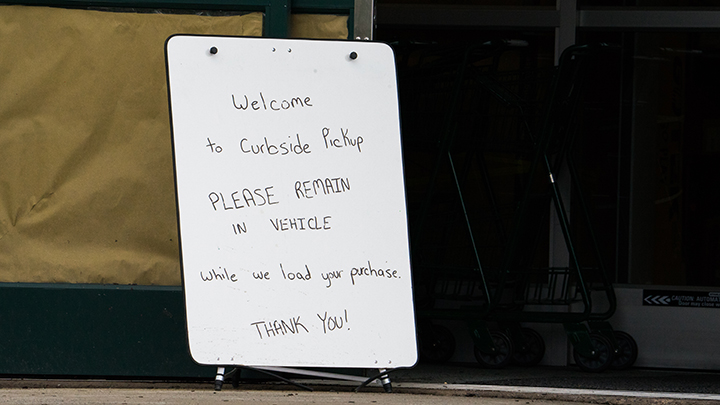 Welcome
to Curbside Pickup
PLEASE REMAIN
IN VEHICLE
while we load your purchase.
THANK YOU!
CAUTION AUTOMA